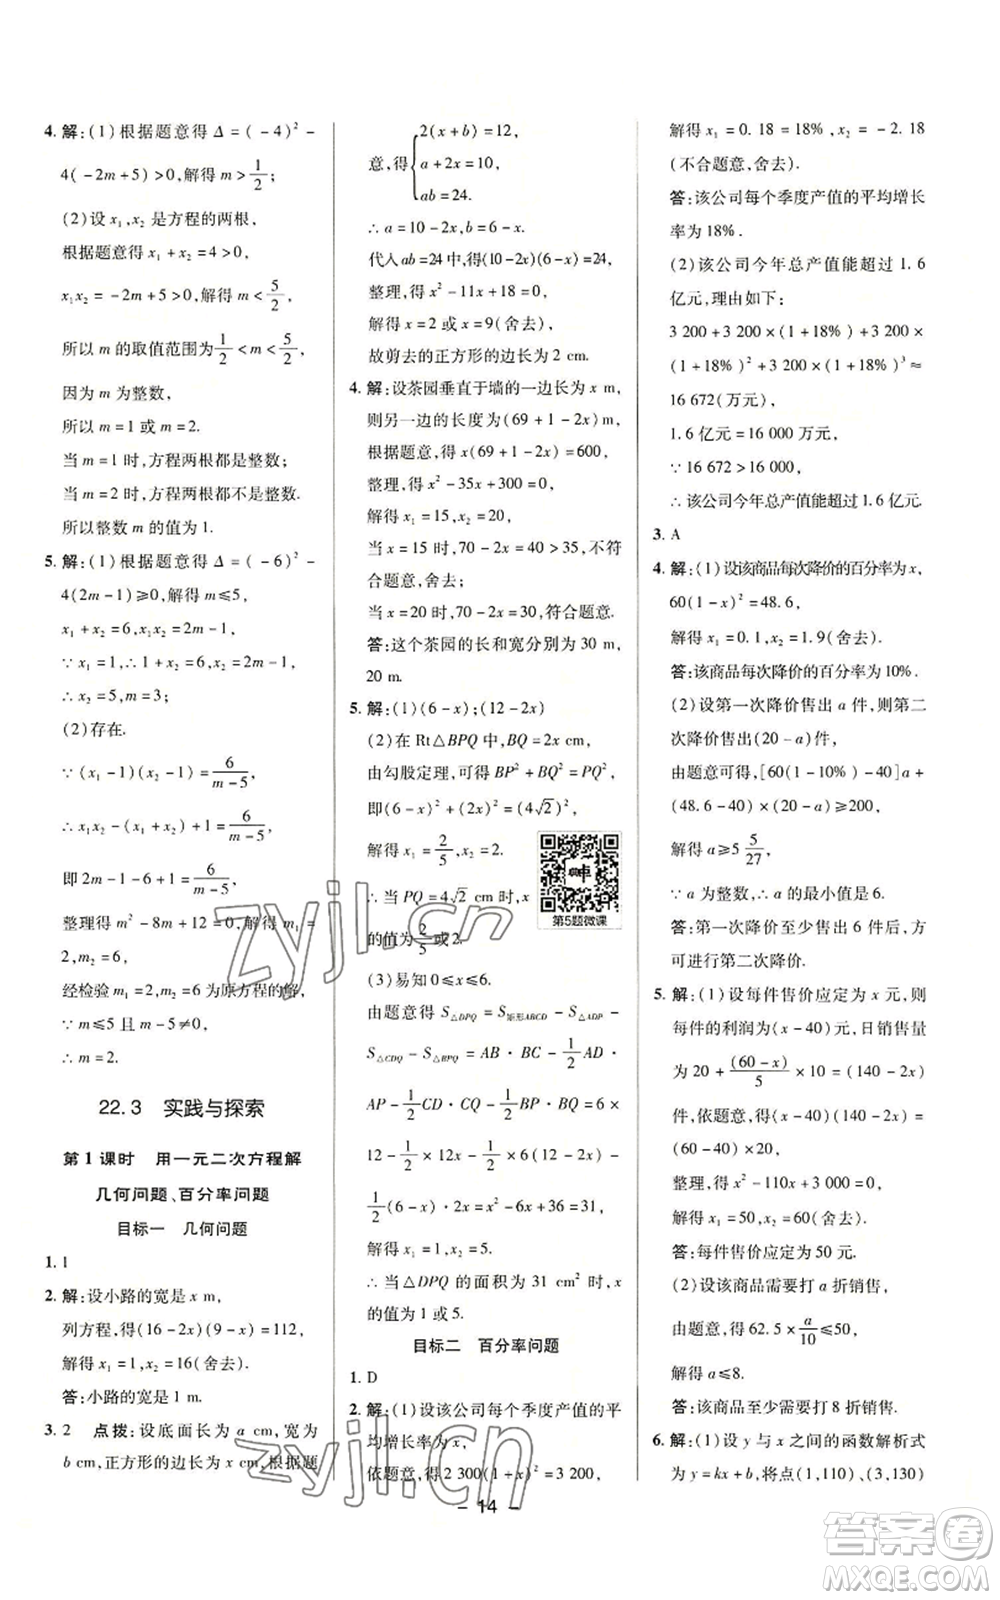 4. 解:(1)根据题意得 Δ=(-4)²-
4(-2m+5)>0,解得 m>1/2;
(2)设 x₁,x₂ 是方程的两根,
根据题意得 x₁+x₂=4>0,
x₁x₂=-2m+5>0,解得 m<5/2,
所以 m 的取值范围为 1/2<m<5/2.
因为 m 为整数,
所以 m=1 或 m=2.
当 m=1 时,方程两根都是整数;
当 m=2 时,方程两根都不是整数.
所以整数 m 的值为 1.
5. 解:(1)根据题意得 Δ=(-6)²-
4(2m-1)≥0,解得 m≤5,
x₁+x₂=6,x₁x₂=2m-1,
∵x₁=1,∴1+x₂=6,x₂=2m-1,
∴x₂=5,m=3;
(2)存在.
∵(x₁-1)(x₂-1)=6/(m-5),
∴x₁x₂-(x₁+x₂)+1=6/(m-5),
即 2m-1-6+1=6/(m-5),
整理得 m²-8m+12=0,解得 m₁=
2,m₂=6,
经检验 m₁=2,m₂=6 为原方程的解,
∵m≤5 且 m-5≠0,
∴m=2.
22.3 实践与探索
第1课时 用一元二次方程解
几何问题、百分率问题
目标一 几何问题
1. 1
2. 解:设小路的宽是 x m,
列方程,得(16-2x)(9-x)=112,
解得 x₁=1,x₂=16(舍去).
答:小路的宽是 1 m.
3. 2 点拨:设底面长为 a cm,宽为
b cm,正方形的边长为 x cm,根据题
意,得{2(x+b)=12,
a+2x=10,
ab=24.
∴a=10-2x,b=6-x.
代入 ab=24 中,得(10-2x)(6-x)=24,
整理,得 x²-11x+18=0,
解得 x=2 或 x=9(舍去).
故剪去的正方形的边长为 2 cm.
4. 解:设茶园垂直于墙的一边长为 x m,
则另一边的长度为(69+1-2x)m,
根据题意,得 x(69+1-2x)=600,
整理,得 x²-35x+300=0,
解得 x₁=15,x₂=20,
当 x=15 时,70-2x=40>35,不符
合题意,舍去;
当 x=20 时,70-2x=30,符合题意.
答:这个茶园的长和宽分别为 30 m,
20 m.
5. 解:(1)(6-x);(12-2x)
(2)在 Rt△BPQ 中,BQ=2x cm,
由勾股定理,得 BP²+BQ²=PQ²,
即(6-x)²+(2x)²=(4√2)²,
解得 x₁=2/5,x₂=2.
∴当 PQ=4√2 cm时,x
的值为 2/5 或 2.
第5题微课
(3)易知 0≤x≤6.
由题意得 S△DPQ=S矩形ABCD-S△ADP-
S△CDQ-S△BPQ=AB·BC-1/2 AD·
AP-1/2 CD·CQ-1/2 BP·BQ=6×
12-1/2×12x-1/2×6(12-2x)-
1/2(6-x)·2x=x²-6x+36=31,
解得 x₁=1,x₂=5.
∴当△DPQ 的面积为 31 cm² 时,x
的值为 1 或 5.
目标二 百分率问题
1. D
2. 解:(1)设该公司每个季度产值的平
均增长率为 x,
依题意,得 2 300(1+x)²=3 200,
解得 x₁=0.18=18%,x₂=-2.18
(不合题意,舍去).
答:该公司每个季度产值的平均增长
率为 18%.
(2)该公司今年总产值能超过 1.6
亿元,理由如下:
3 200+3 200×(1+18%)+3 200×
(1+18%)²+3 200×(1+18%)³≈
16 672(万元),
1.6 亿元=16 000 万元,
∵16 672>16 000,
∴该公司今年总产值能超过 1.6 亿元.
3. A
4. 解:(1)设该商品每次降价的百分率为 x,
60(1-x)²=48.6,
解得 x₁=0.1,x₂=1.9(舍去).
答:该商品每次降价的百分率为 10%.
(2)设第一次降价售出 a 件,则第二
次降价售出(20-a)件,
由题意可得,[60(1-10%)-40]a+
(48.6-40)×(20-a)≥200,
解得 a≥5 5/27,
∵a 为整数,∴a 的最小值是 6.
答:第一次降价至少售出 6 件后,方
可进行第二次降价.
5. 解:(1)设每件售价应定为 x 元,则
每件的利润为(x-40)元,日销售量
为 20+(60-x)/5×10=(140-2x)
件,依题意,得(x-40)(140-2x)=
(60-40)×20,
整理,得 x²-110x+3 000=0,
解得 x₁=50,x₂=60(舍去).
答:每件售价应定为 50 元.
(2)设该商品需要打 a 折销售,
由题意,得 62.5×a/10≤50,
解得 a≤8.
答:该商品至少需打 8 折销售.
6. 解:(1)设 y 与 x 之间的函数解析式
为 y=kx+b,将点(1,110)、(3,130)
- 14 -
zyjl.cn
zyjl.cn
答案圈
MXQE.COM